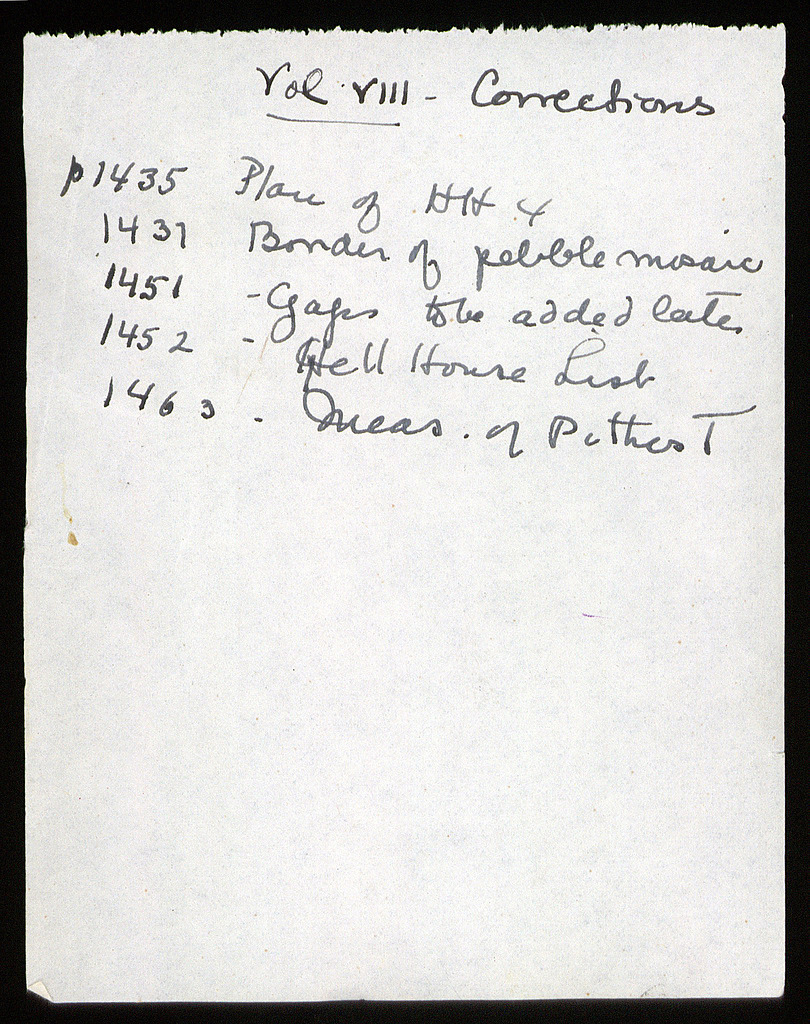 Vol VIII - Corrections
p1435 Plan of HH 4
1437 Border of pebble mosaic
1451 - Gaps to be added later
1452 - Hell House List
1463 - Meas. of Pithos T